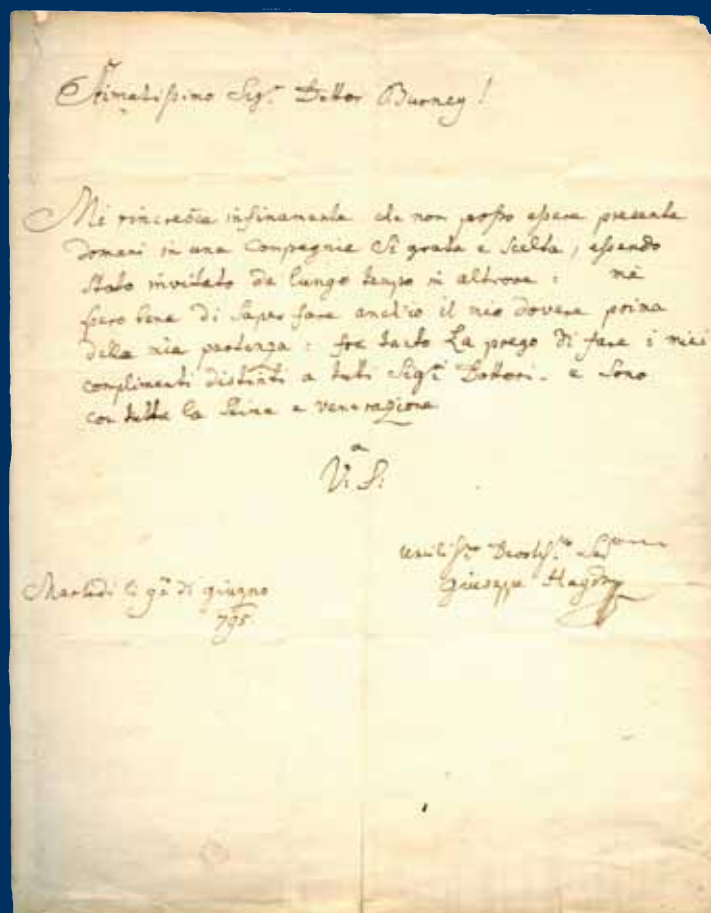 Stimatissimo Sigr. Dottor Burney!
Mi rincresce infinamente che non posso essere presente
domani in una Compagnie Si grata e Scelta, essendo
stato invitato da lungo tempo in altrove: mà
spero bene di saper fare anch'io il mio dovere prima
della mia partenza: fra tanto La prego di fare i miei
complimenti distinti a tutti Sigri Dottori. e Sono
con tutta la Stima e venerazione
V: Sa:
umilissmo Devotissmo
Giuseppe Haydn
Martedi li 9a di giugno
795